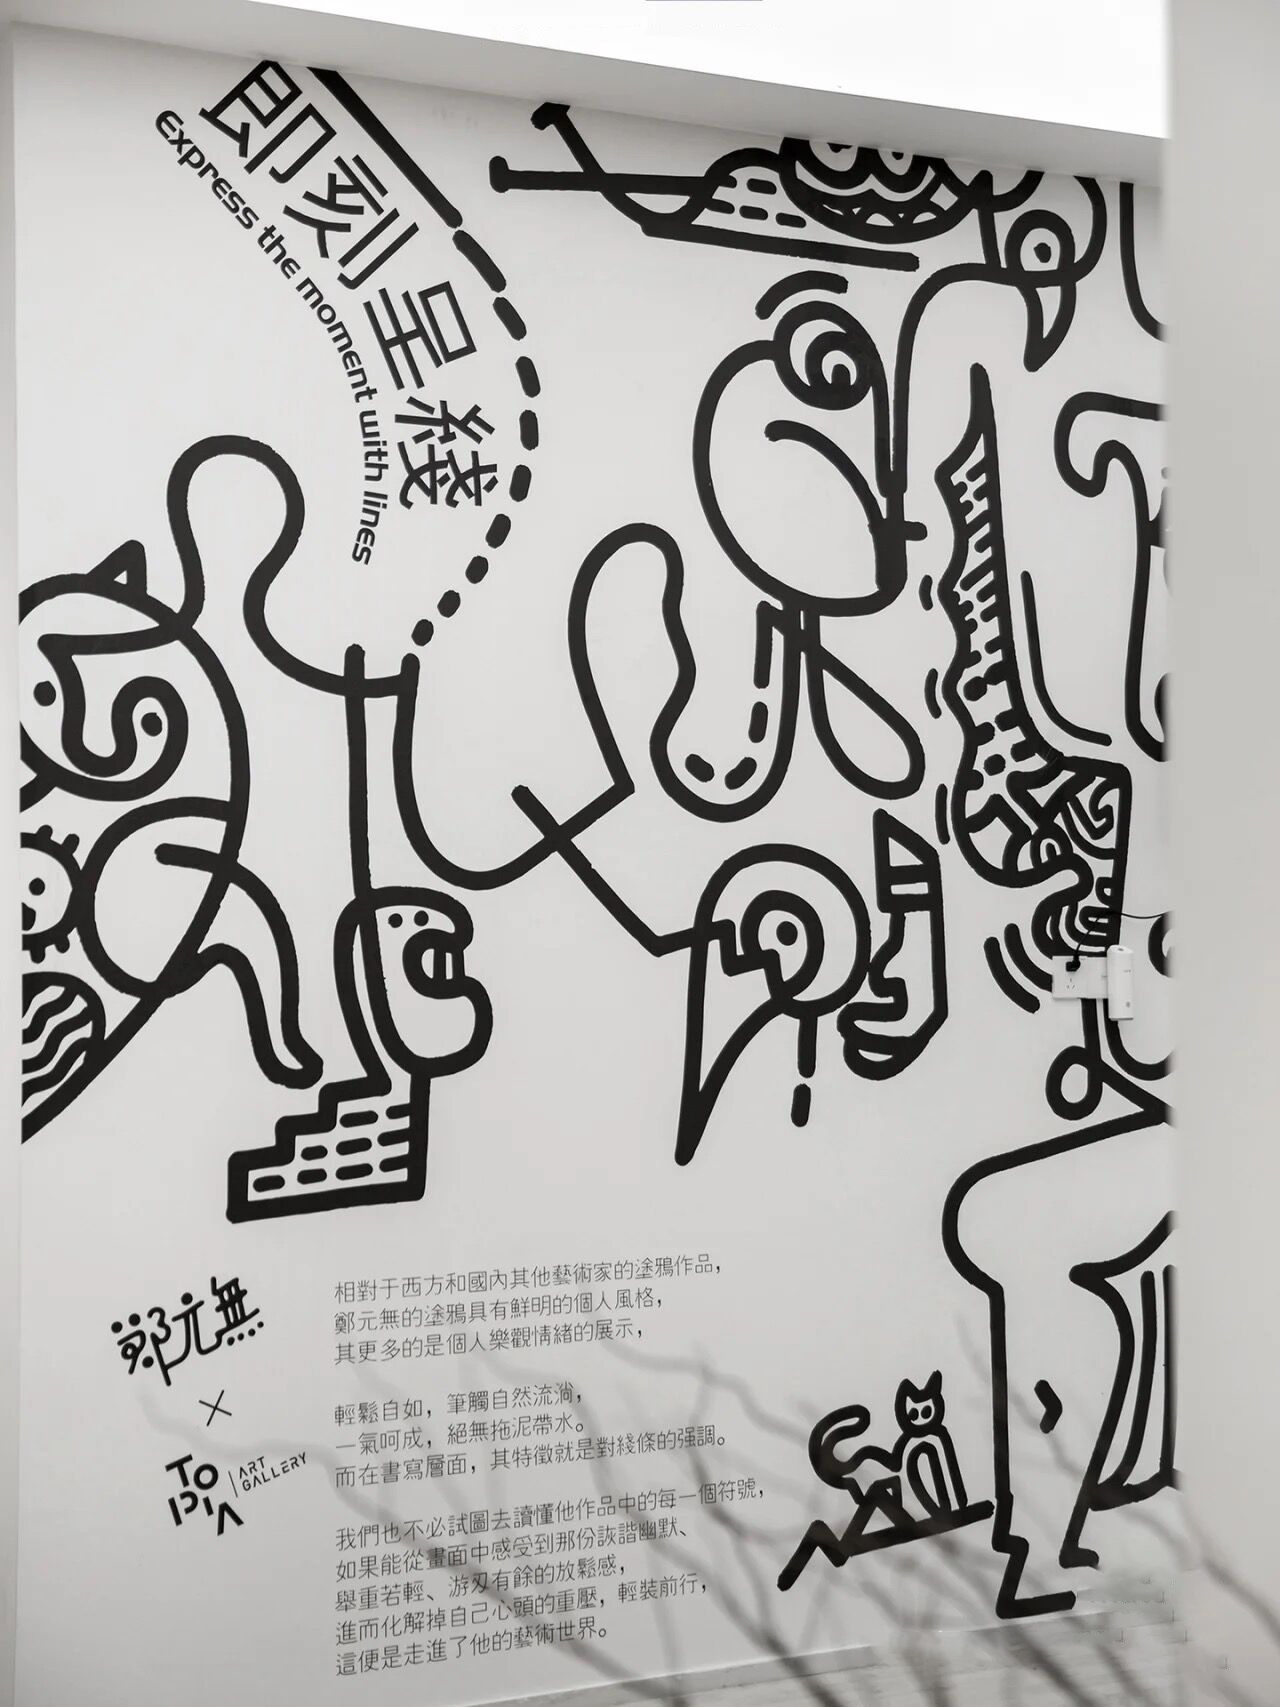 即刻呈綫
Express the moment with lines
鄭元無
×
TOPIA ART GALLERY
相對于西方和國內其他藝術家的塗鴉作品，
鄭元無的塗鴉具有鮮明的個人風格，
其更多的是個人樂觀情緒的展示，
輕鬆自如，筆觸自然流淌，
一氣呵成，絕無拖泥帶水。
而在書寫層面，其特徵就是對綫條的强調。
我們也不必試圖去讀懂他作品中的每一個符號，
如果能從畫面中感受到那份詼諧幽默、
舉重若輕、游刃有餘的放鬆感，
進而化解掉自己心頭的重壓，輕裝前行，
這便是走進了他的藝術世界。